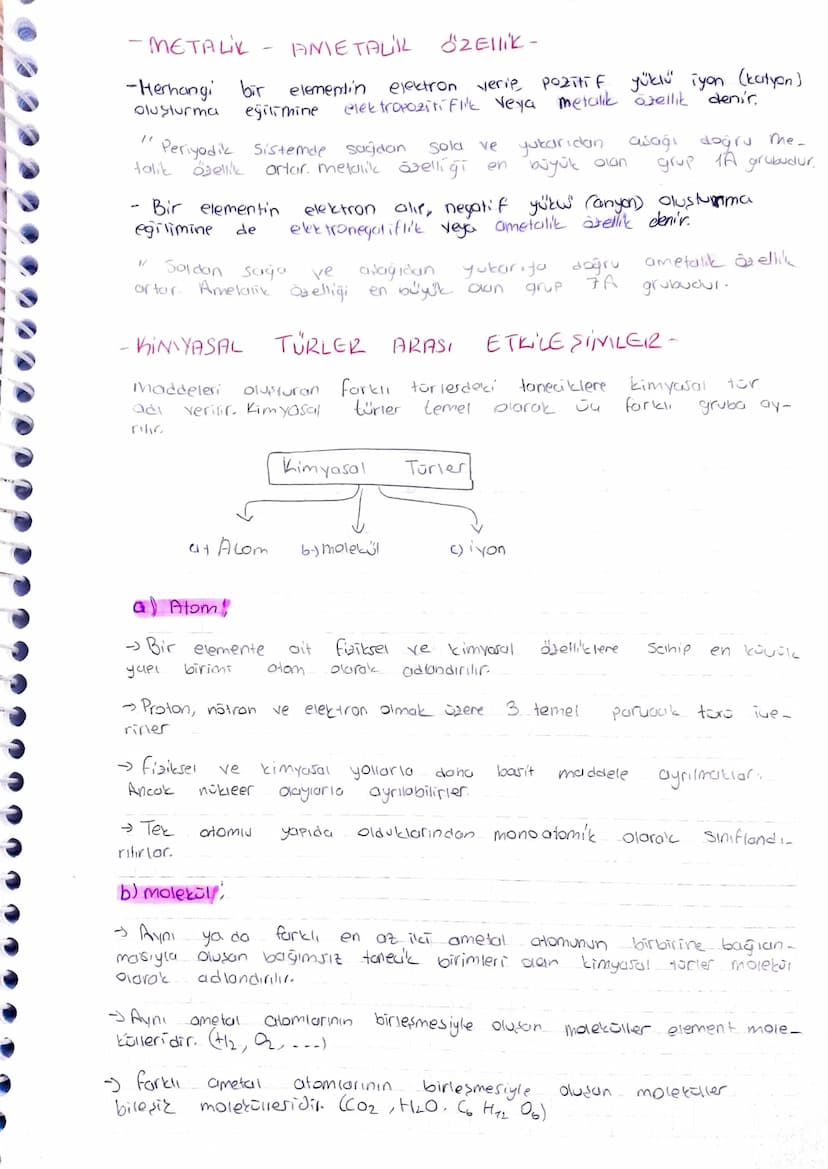 - METALİK - AMETALİK ÖZELLİK -
- Herhangi bir elementin elektron verip, pozitif yüklü iyon (katyon)
oluşturma eğilimine elektropozitiflik veya metalik özellik denir.
" Periyodik sistemde sağdan sola ve yukarıdan aşağı doğru me-
talik özellik artar. metalik özelliği en büyük olan grup 1A grubudur.
- Bir elementin elektron alıp, negatif yüklü (anyon) oluşturma
eğilimine de elektronegatiflik veya ametalik özellik denir.
" Soldan sağa ve aşağıdan yukarıya doğru ametalik özellik
artar. Ametalik özelliği en büyük olan grup 7A grubudur.
- KİMYASAL TÜRLER ARASI ETKİLEŞİMLER -
Maddeleri oluşturan farklı türlerdeki taneciklere kimyasal tür
adı verilir. Kimyasal türler temel olarak üç farklı gruba ay-
rılır.
Kimyasal Türler
a) Atom b-) molekül c) iyon
a) Atom:
→ Bir elemente ait fiziksel ve kimyasal özelliklere sahip en küçük
yapı birimi atom olarak adlandırılır.
→ Proton, nötron ve elektron olmak üzere 3 temel parçacık türü içe-
rirler
→ fiziksel ve kimyasal yollarla daha basit maddele ayrılmazlar.
Ancak nükleer olaylarla ayrılabilirler.
→ Tek atomlu yapıda olduklarından monoatomik olarak sınıflandı-
rılırlar.
b) molekül:
→ Aynı ya da farklı en az iki ametal atomunun birbirine bağlan-
masıyla oluşan bağımsız tanecik birimleri olan kimyasal türler molekül
olarak adlandırılır.
→ Aynı ametal atomlarının birleşmesiyle oluşan moleküller element mole-
külleridir. (H2, O2, ...)
→ farklı ametal atomlarının birleşmesiyle oluşan moleküller
bileşik molekülleridir. (CO2, H2O, C6 H12 O6)